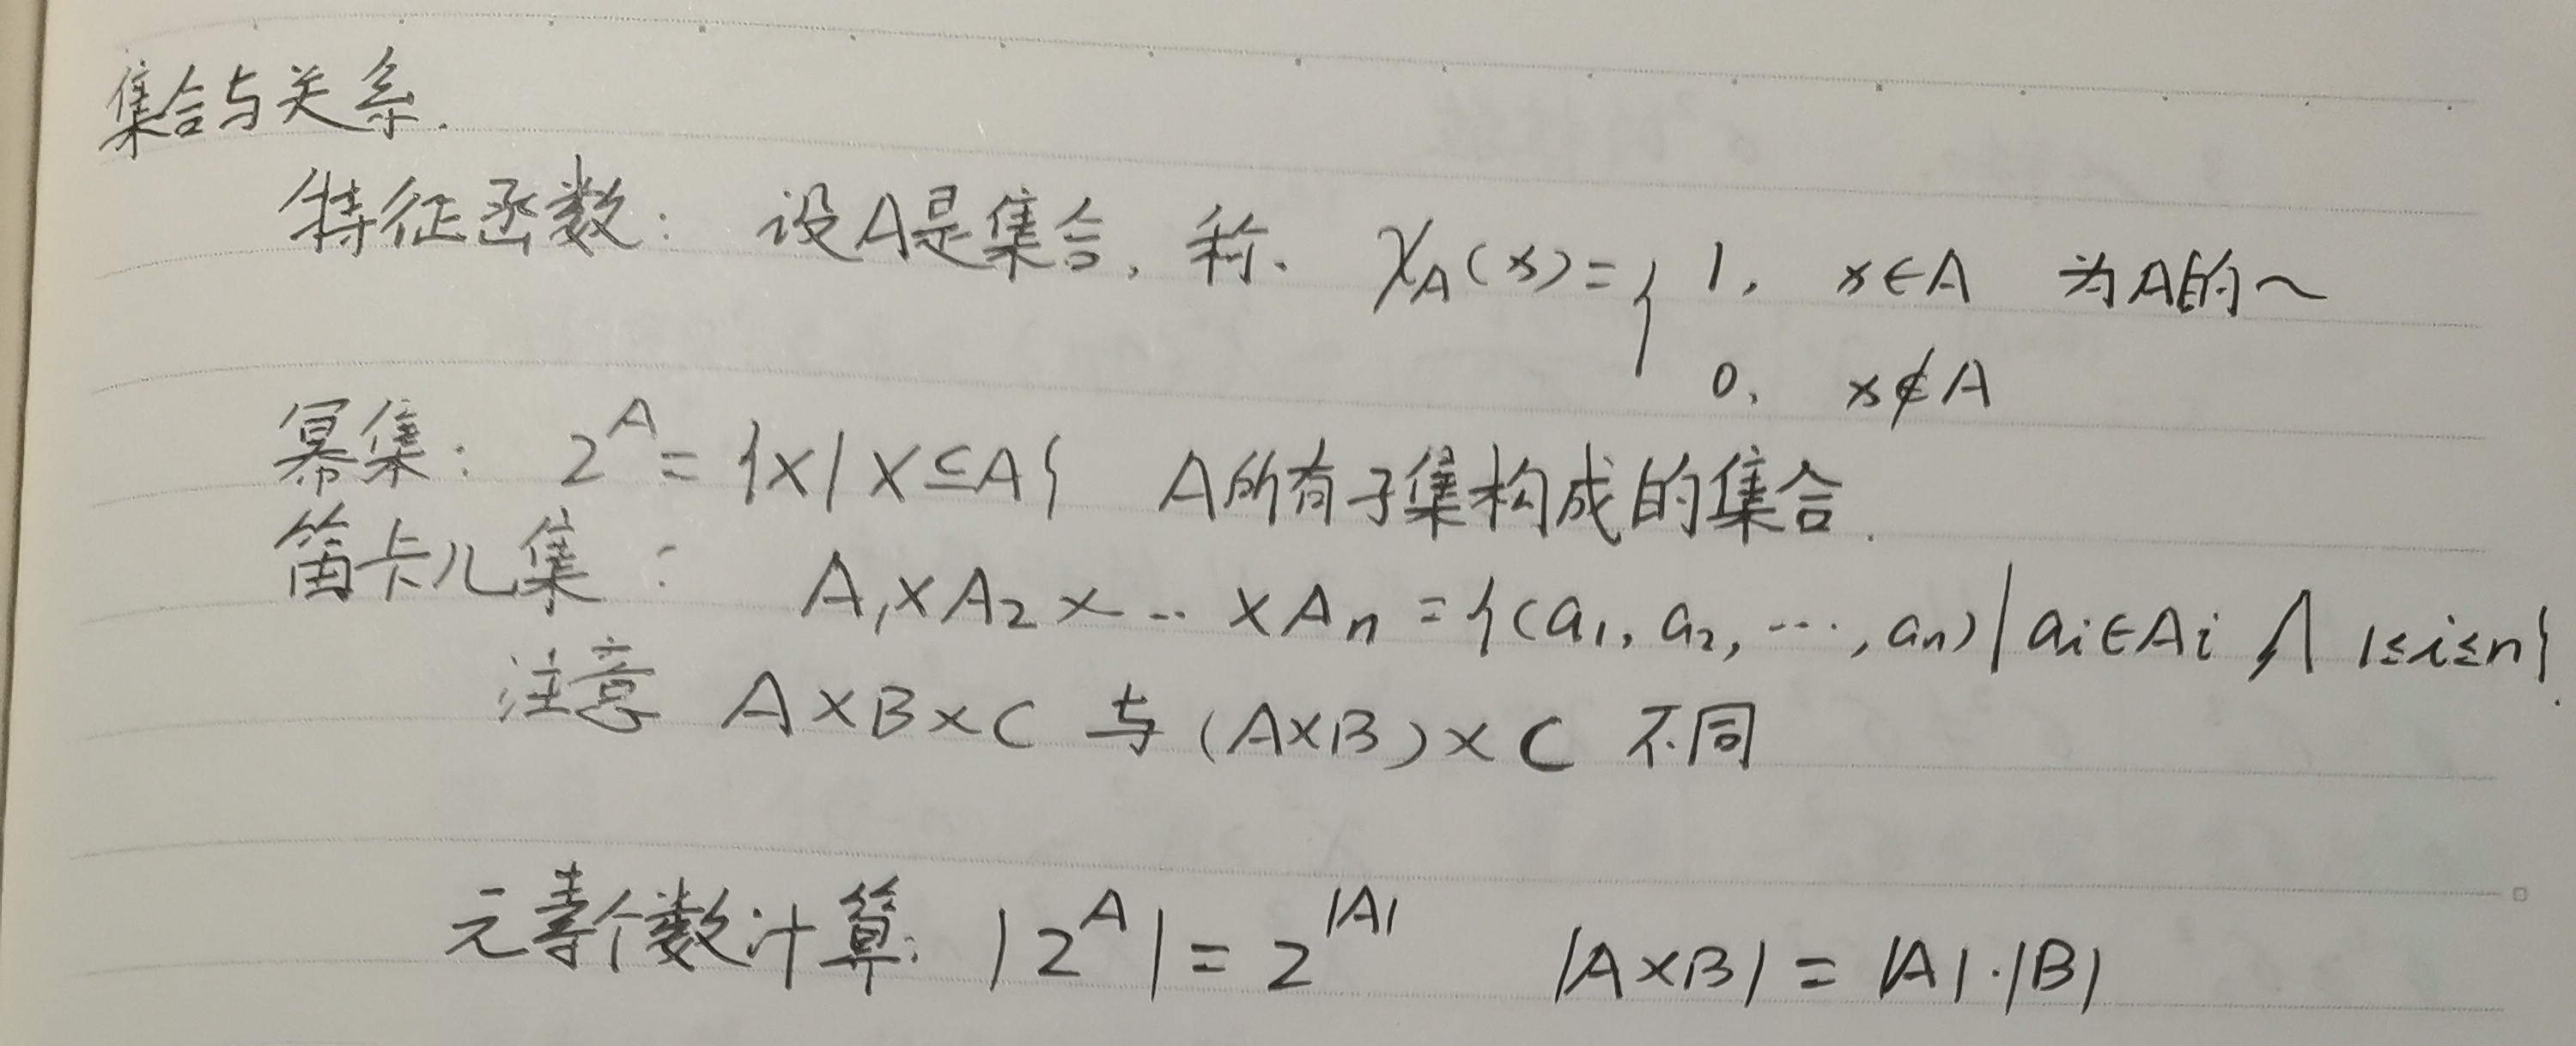 集合与关系.
特征函数: 设A是集合, 称. χ_A(x)={ 1, x∈A 为A的~
0, x∉A
幂集: 2^A={X|X⊆A} A所有子集构成的集合.
笛卡儿集: A₁×A₂×…×Aₙ={(a₁, a₂, …, aₙ)|aᵢ∈Aᵢ ∧ 1≤i≤n}.
注意 A×B×C 与 (A×B)×C 不同
元素个数计算: |2^A|=2^|A| |A×B|=|A|·|B|